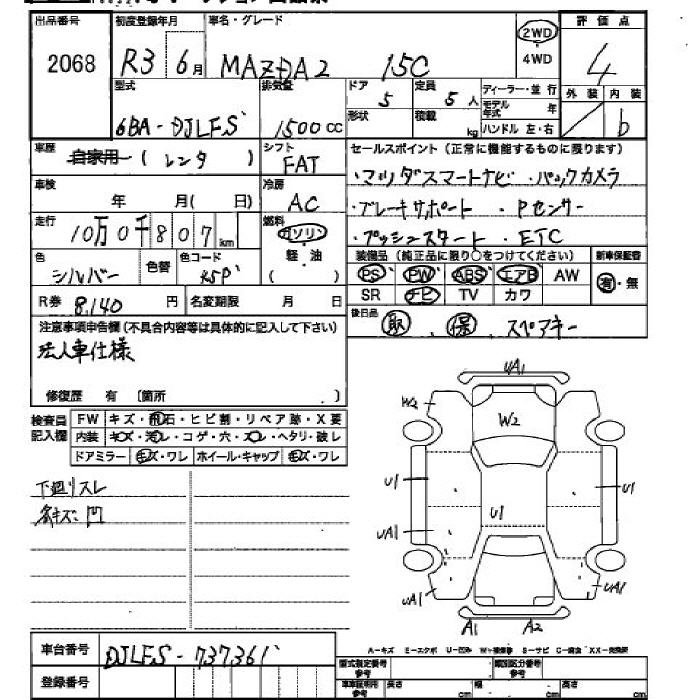 出品番号 初度登録年月 車名・グレード 2WD 評価点
2068 R3 6月 MAZDA2 15C 4WD 4
型式 排気量 ドア 定員 ディーラー・並行 外装 内装
5 5人 モデル年式 年
6BA-DJLFS 1500cc 形状 積載 kg ハンドル 左・右 b
車歴 自家用 (レンタ) シフト FAT セールスポイント(正常に機能するものに限ります)
車検 年 月(日) 冷房 AC ・マツダスマートナビ ・バックカメラ
走行 10万0千807km 燃料 ガソリン ・ブレーキサポート ・Pセンサー
軽・油 ・プッシュスタート ・ETC
色 シルバー 色替 色コード 45P ( ) 装備品(純正品に限り○をつけてください) 新車保証書
PS PW ABS エアB AW 有・無
R券 8,140円 名変期限 月 日 SR ナビ TV カワ
注意事項申告欄(不具合内容等は具体的に記入して下さい) 後日品 取 . 保 . スペアキー
法人車仕様
修復歴 有 〔箇所 . 〕
検査員記入欄 FW キズ・飛石・ヒビ割・リペア跡・X要
内装 キズ・汚レ・コゲ・穴・スレ・ヘタリ・破レ
ドアミラー キズ・ワレ ホイール・キャップ キズ・ワレ
UA1
W2
W2
下廻リスレ
U1 U1
各キズ凹
U1
UA1
UA1 UA1
A1 A2
車台番号 DJLFS-737361
A-キズ E-エクボ U-凹ミ W-補修跡 S-サビ C-腐食 XX-交換済
登録番号 型式指定番号 参考 類別区分番号 参考
車車証明用 参考 長さ cm 幅 cm 高さ cm